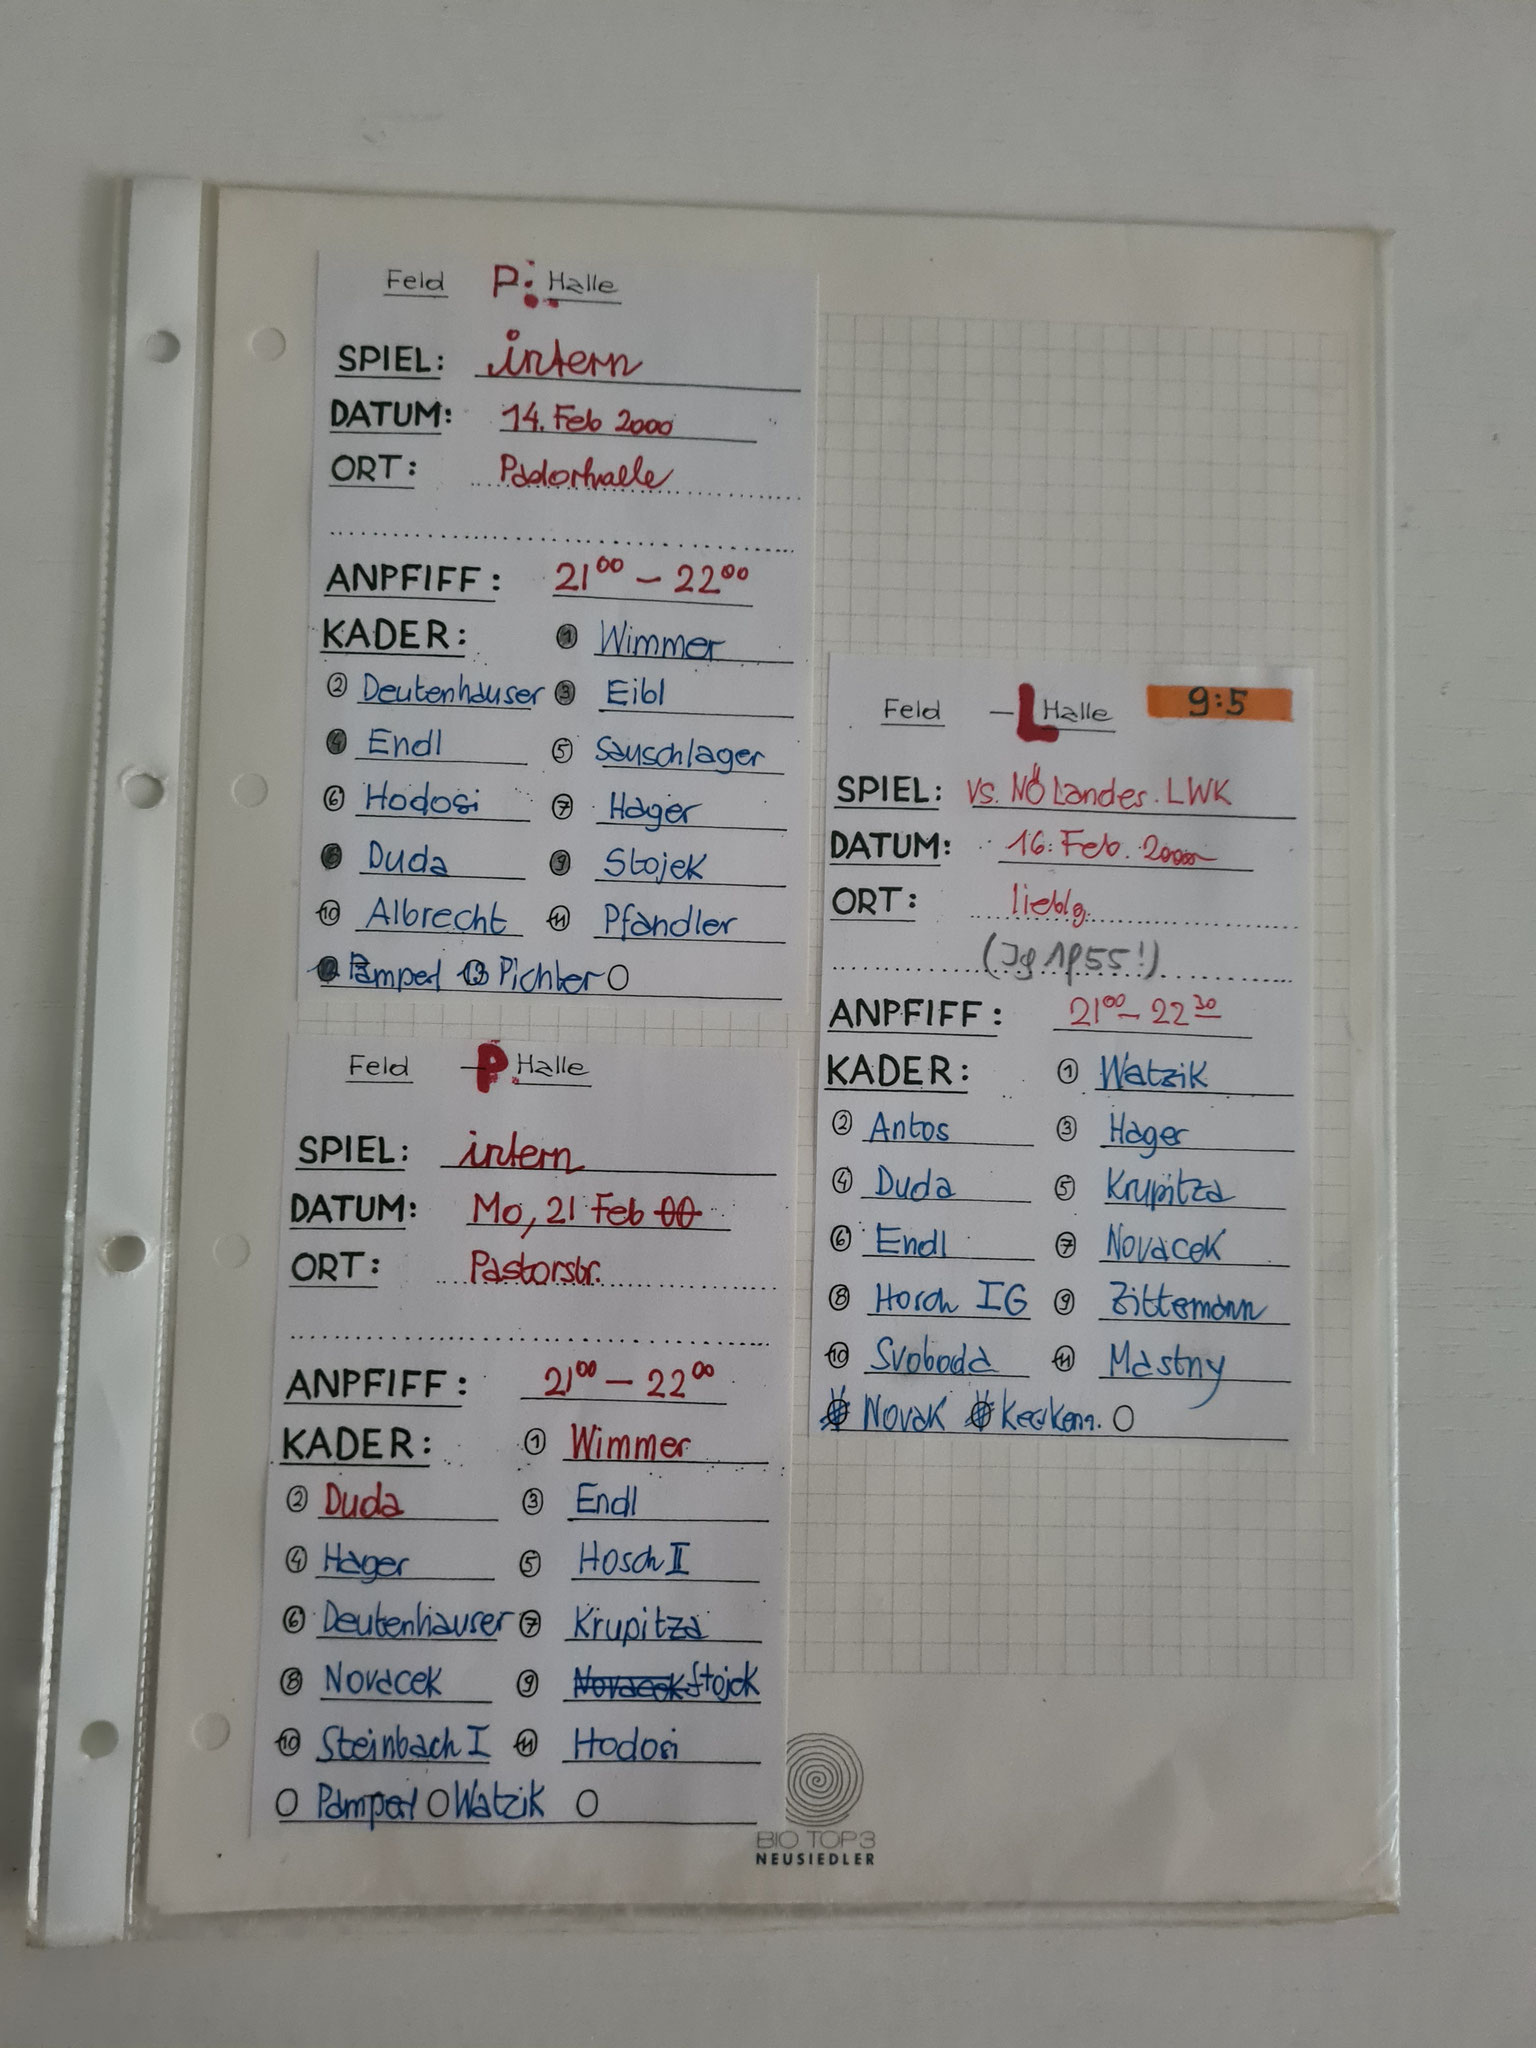 Feld P: Halle
SPIEL: intern
DATUM: 14. Feb 2000
ORT: Pastorhalle
ANPFIFF: 21⁰⁰ – 22⁰⁰
KADER: ① Wimmer
② Deutenhauser ③ Eibl
④ Endl ⑤ Sauschlager
⑥ Hodosi ⑦ Hager
⑧ Duda ⑨ Stojek
⑩ Albrecht ⑪ Pfandler
⑫ Pamperl ⑬ Pichler ○
Feld – P. Halle
SPIEL: intern
DATUM: Mo, 21 Feb 00
ORT: Pastorstr.
ANPFIFF: 21⁰⁰ – 22⁰⁰
KADER: ① Wimmer
② Duda ③ Endl
④ Hager ⑤ Hosch II
⑥ Deutenhauser ⑦ Krupitza
⑧ Novacek ⑨ Novacek Stojek
⑩ Steinbach I ⑪ Hodosi
○ Pamperl ○ Watzik ○
Feld – L Halle 9:5
SPIEL: vs. NÖ Landes. LWK
DATUM: 16. Feb. 2000
ORT: lieblg.
(Jg 1955!)
ANPFIFF: 21⁰⁰ – 22³⁰
KADER: ① Watzik
② Antos ③ Hager
④ Duda ⑤ Krupitza
⑥ Endl ⑦ Novacek
⑧ Hosch IG ⑨ Zittemann
⑩ Svoboda ⑪ Mastny
Novak ○
BIO TOP 3
NEUSIEDLER